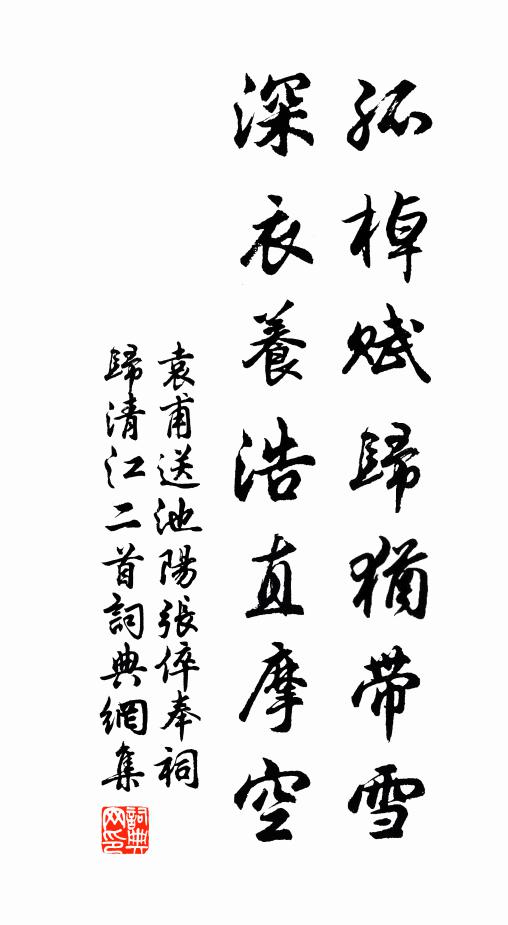 孤棹賦歸猶带雪
深衣養浩直摩空
袁甫送池陽張倅奉祠
歸清江二首詞典網集
詞典
网印